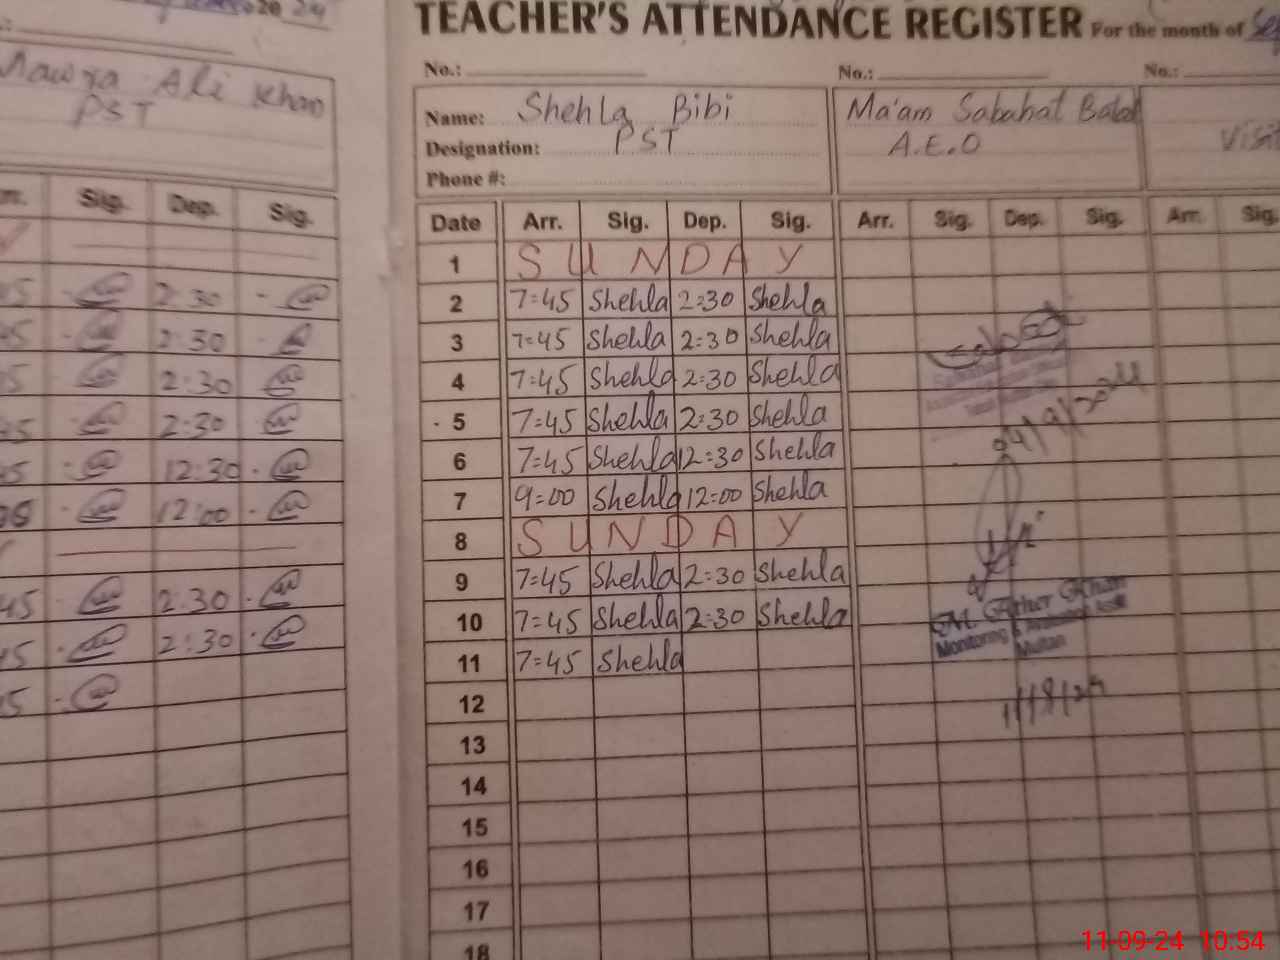 2024
Mawra Ali Khan
PST
Sig. Dep. Sig.
2:30
2:30
2:30
2:30
12:30
12:00
2:30
2:30
TEACHER'S ATTENDANCE REGISTER For the month of Sep
No.: No.: No.:
Name: Shehla Bibi Ma'am Sabahat
Designation: PST A.E.O
Phone #:
Date Arr. Sig. Dep. Sig. Arr. Sig. Dep. Sig. Arr. Sig.
1 SUNDAY
2 7=45 Shehla 2=30 Shehla
3 7=45 Shehla 2=30 Shehla
4 7=45 Shehla 2=30 Shehla
5 7=45 Shehla 2=30 Shehla
6 7=45 Shehla 12=30 Shehla
7 9=00 Shehla 12=00 Shehla
8 SUNDAY
9 7=45 Shehla 2=30 Shehla
10 7=45 Shehla 2=30 Shehla
11 7=45 Shehla
12
13
14
15
16
17
18
04/9/2024
M. Ather Khan
Monitoring & Evaluation
Multan
11-09-24 10:54